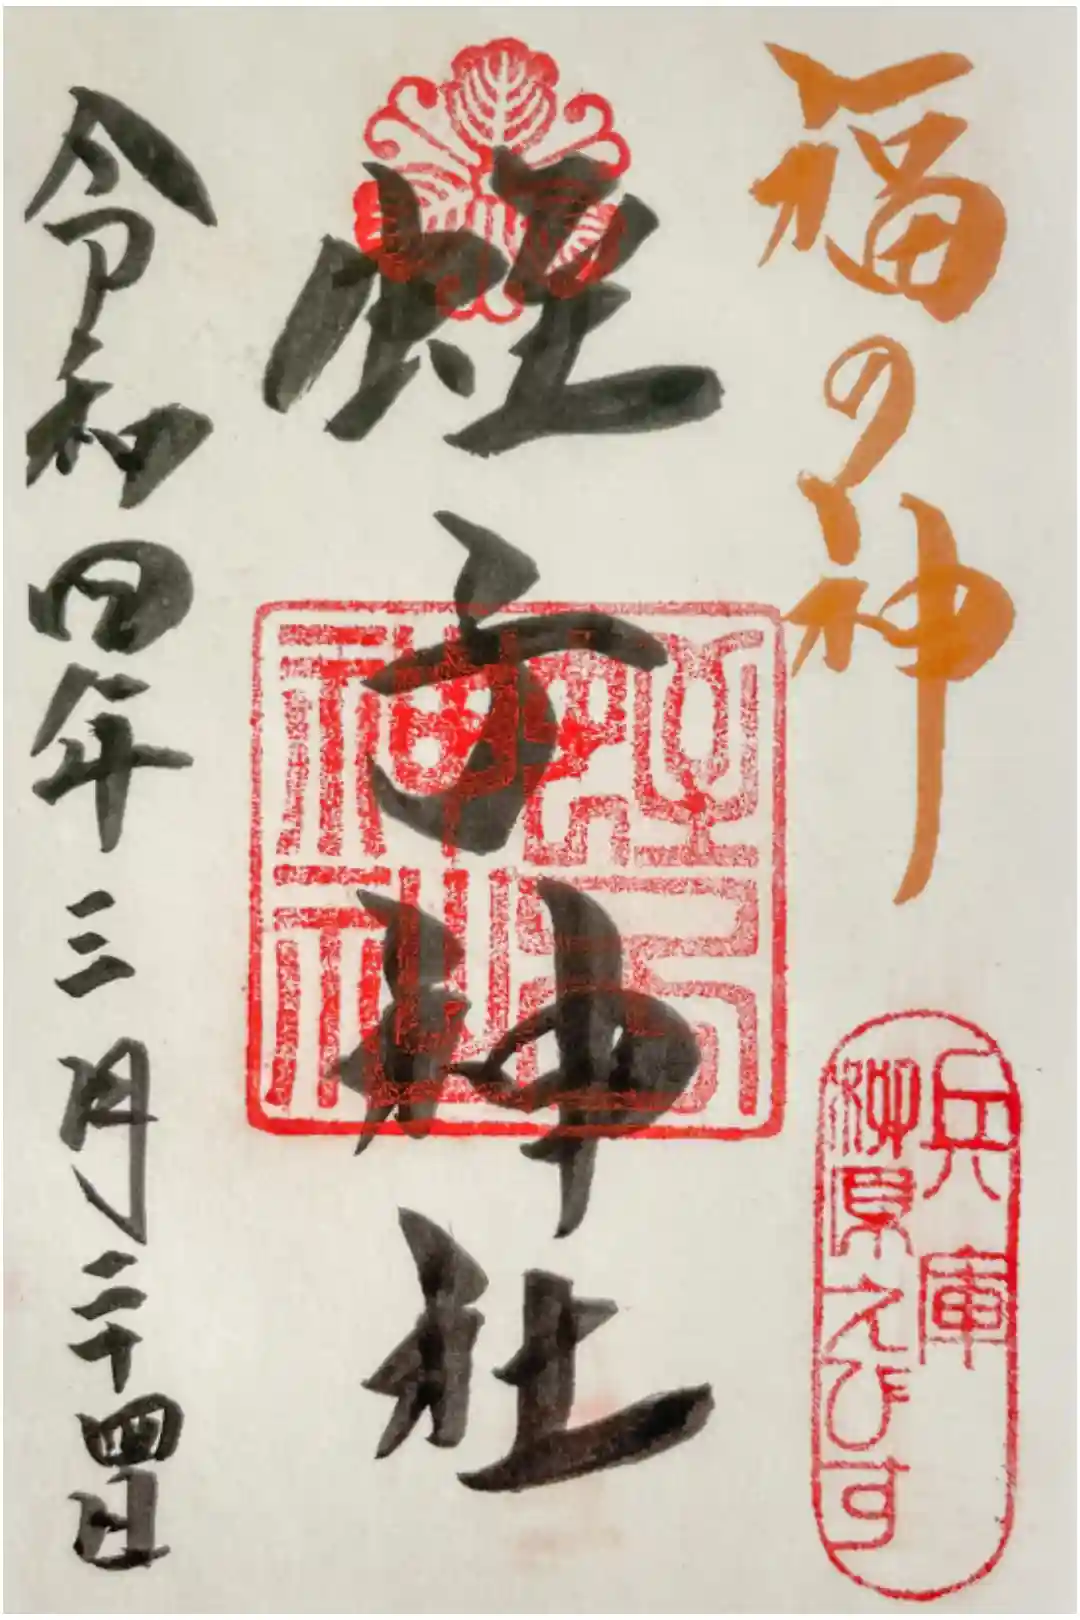 福の神
兵庫
柳原えびす
蛭子神社
蛭子神社
令和四年三月二十四日